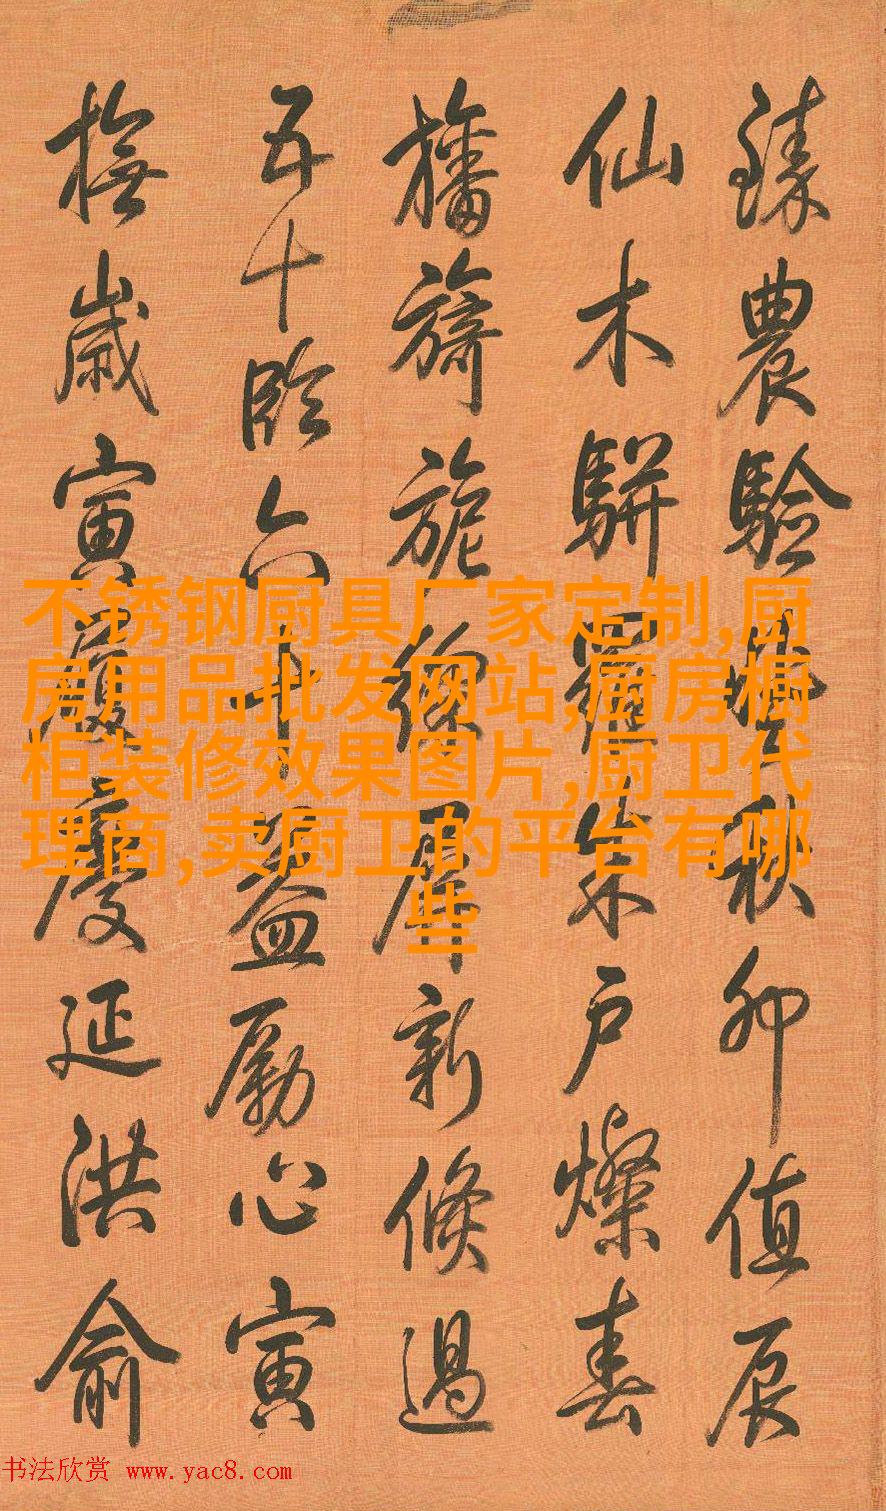 臻農驗豐秋卯值辰
仙木駢羅朱戶燦春
旛旖旎屏新倏過
五十臨六十益勵心寅
撫歲寅履慶延洪俞
不锈钢厨具厂家定制,厨
房用品批发网站,厨房橱
柜装修效果图片,厨卫代
理商,卖厨卫的平台有哪
些
书法欣赏 www.yac8.com